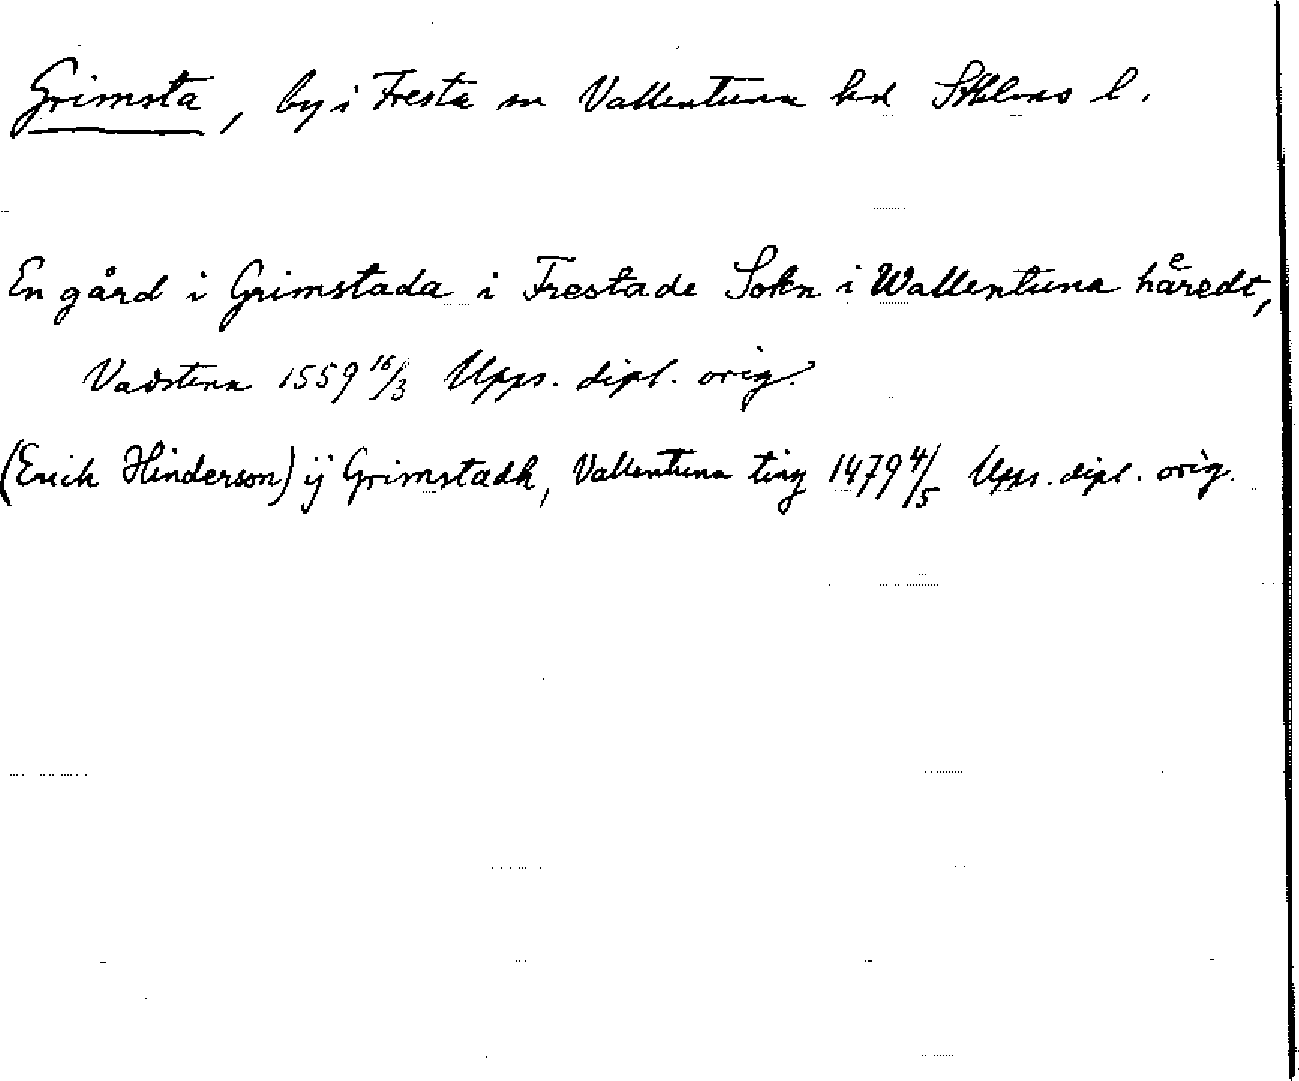 Grimsta, by i Fresta sn Vallentuna hd Sthlms l.
En gård i Grimstada i Frestade Sokn i Wallentuna håredt,
Vadstena 1559 16/3 Upps. dipl. orig.
(Erich Hinderson) ij Grimstadh, Vallentuna ting 1479 4/5 Upps. dipl. orig.